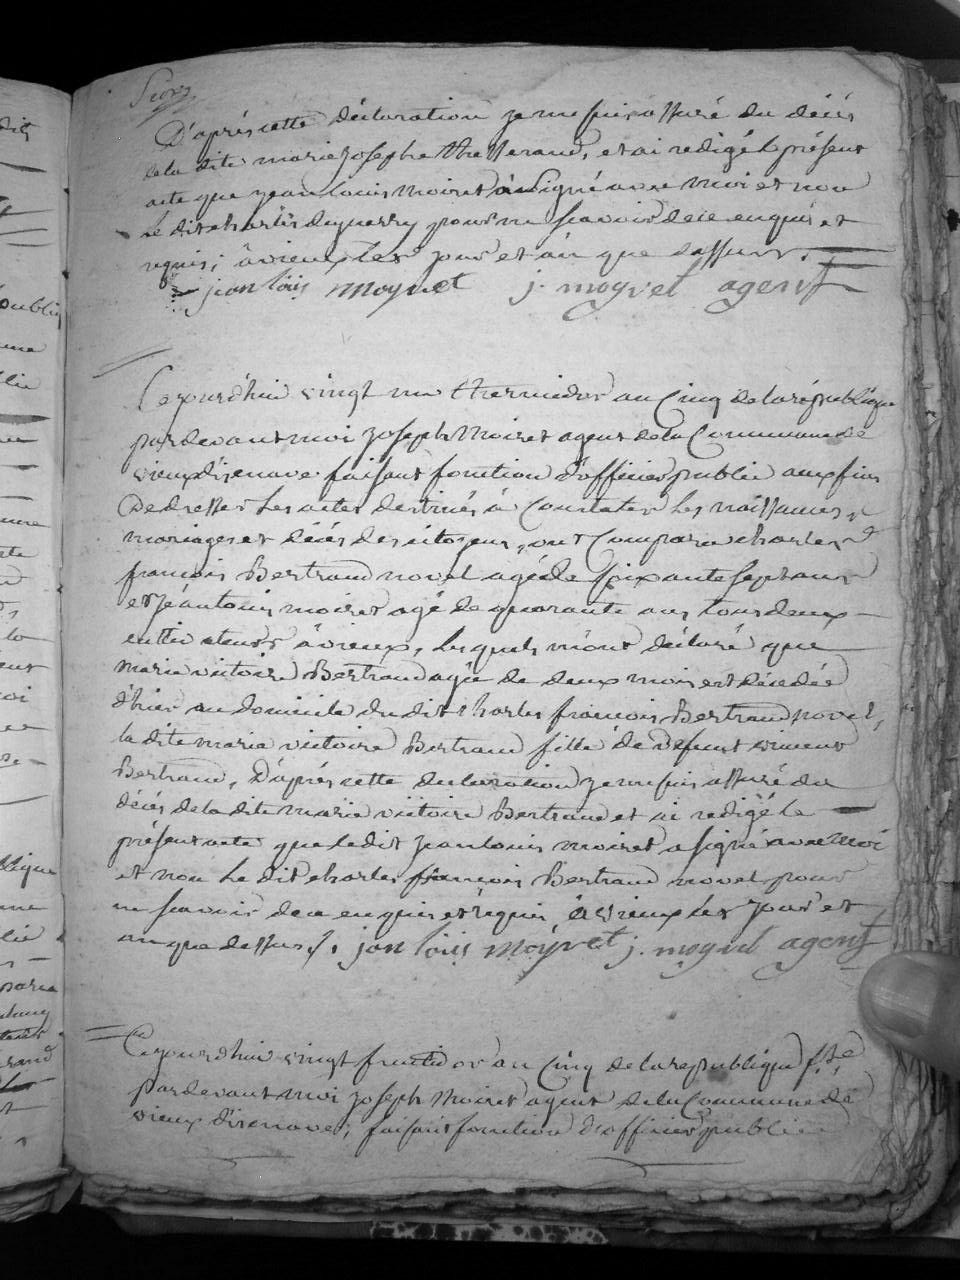 D'après cette déclaration je me suis assuré du décès
de la dite marie josephe thesserand, et ai redigé le présent
acte que jean louis Moiret a signé avec moi et non
Le dit charles duguerry pour ne scavoir de ce enquis et
requis; à vieux les jour et an que dessus.
jean lois moyret j. moyret agent
Cejourd'hui vingt un thermidor an Cinq de la république
pardevant moi joseph Moiret agent de la Commune de
vieux d'izenave faisant fonction d'officier public aux fins
De dresser Les actes destinés à Constater Les naissances,
mariages et décés des citoyens, ont Comparu charles
françois Bertrand novel agé de soixante sept ans
et jean louis moiret agé de quarante ans tous deux
cultivateurs à vieux, Lesquels m'ont déclaré que
marie victoire Bertrand agée de deux mois est décédée
d'hier au domicile du dit charles françois Bertrand novel,
la dite marie victoire Bertrand fille de défunt
Bertrand, D'après cette declaration je me suis assuré du
décés de la dite marie victoire Bertrand et ai redigé le
présent acte que le dit jean louis moiret a signé avec moi
et non Le dit charles françois Bertrand novel pour
ne scavoir de ce enquis et requis, à vieux Les jour et
an que dessus. jan lois moyret j. moyret agent
Cejourd'hui vingt fructidor an Cinq de la republique
pardevant moi joseph Moiret agent de la Commune de
vieux d'izenave, faisant fonction d'officier public